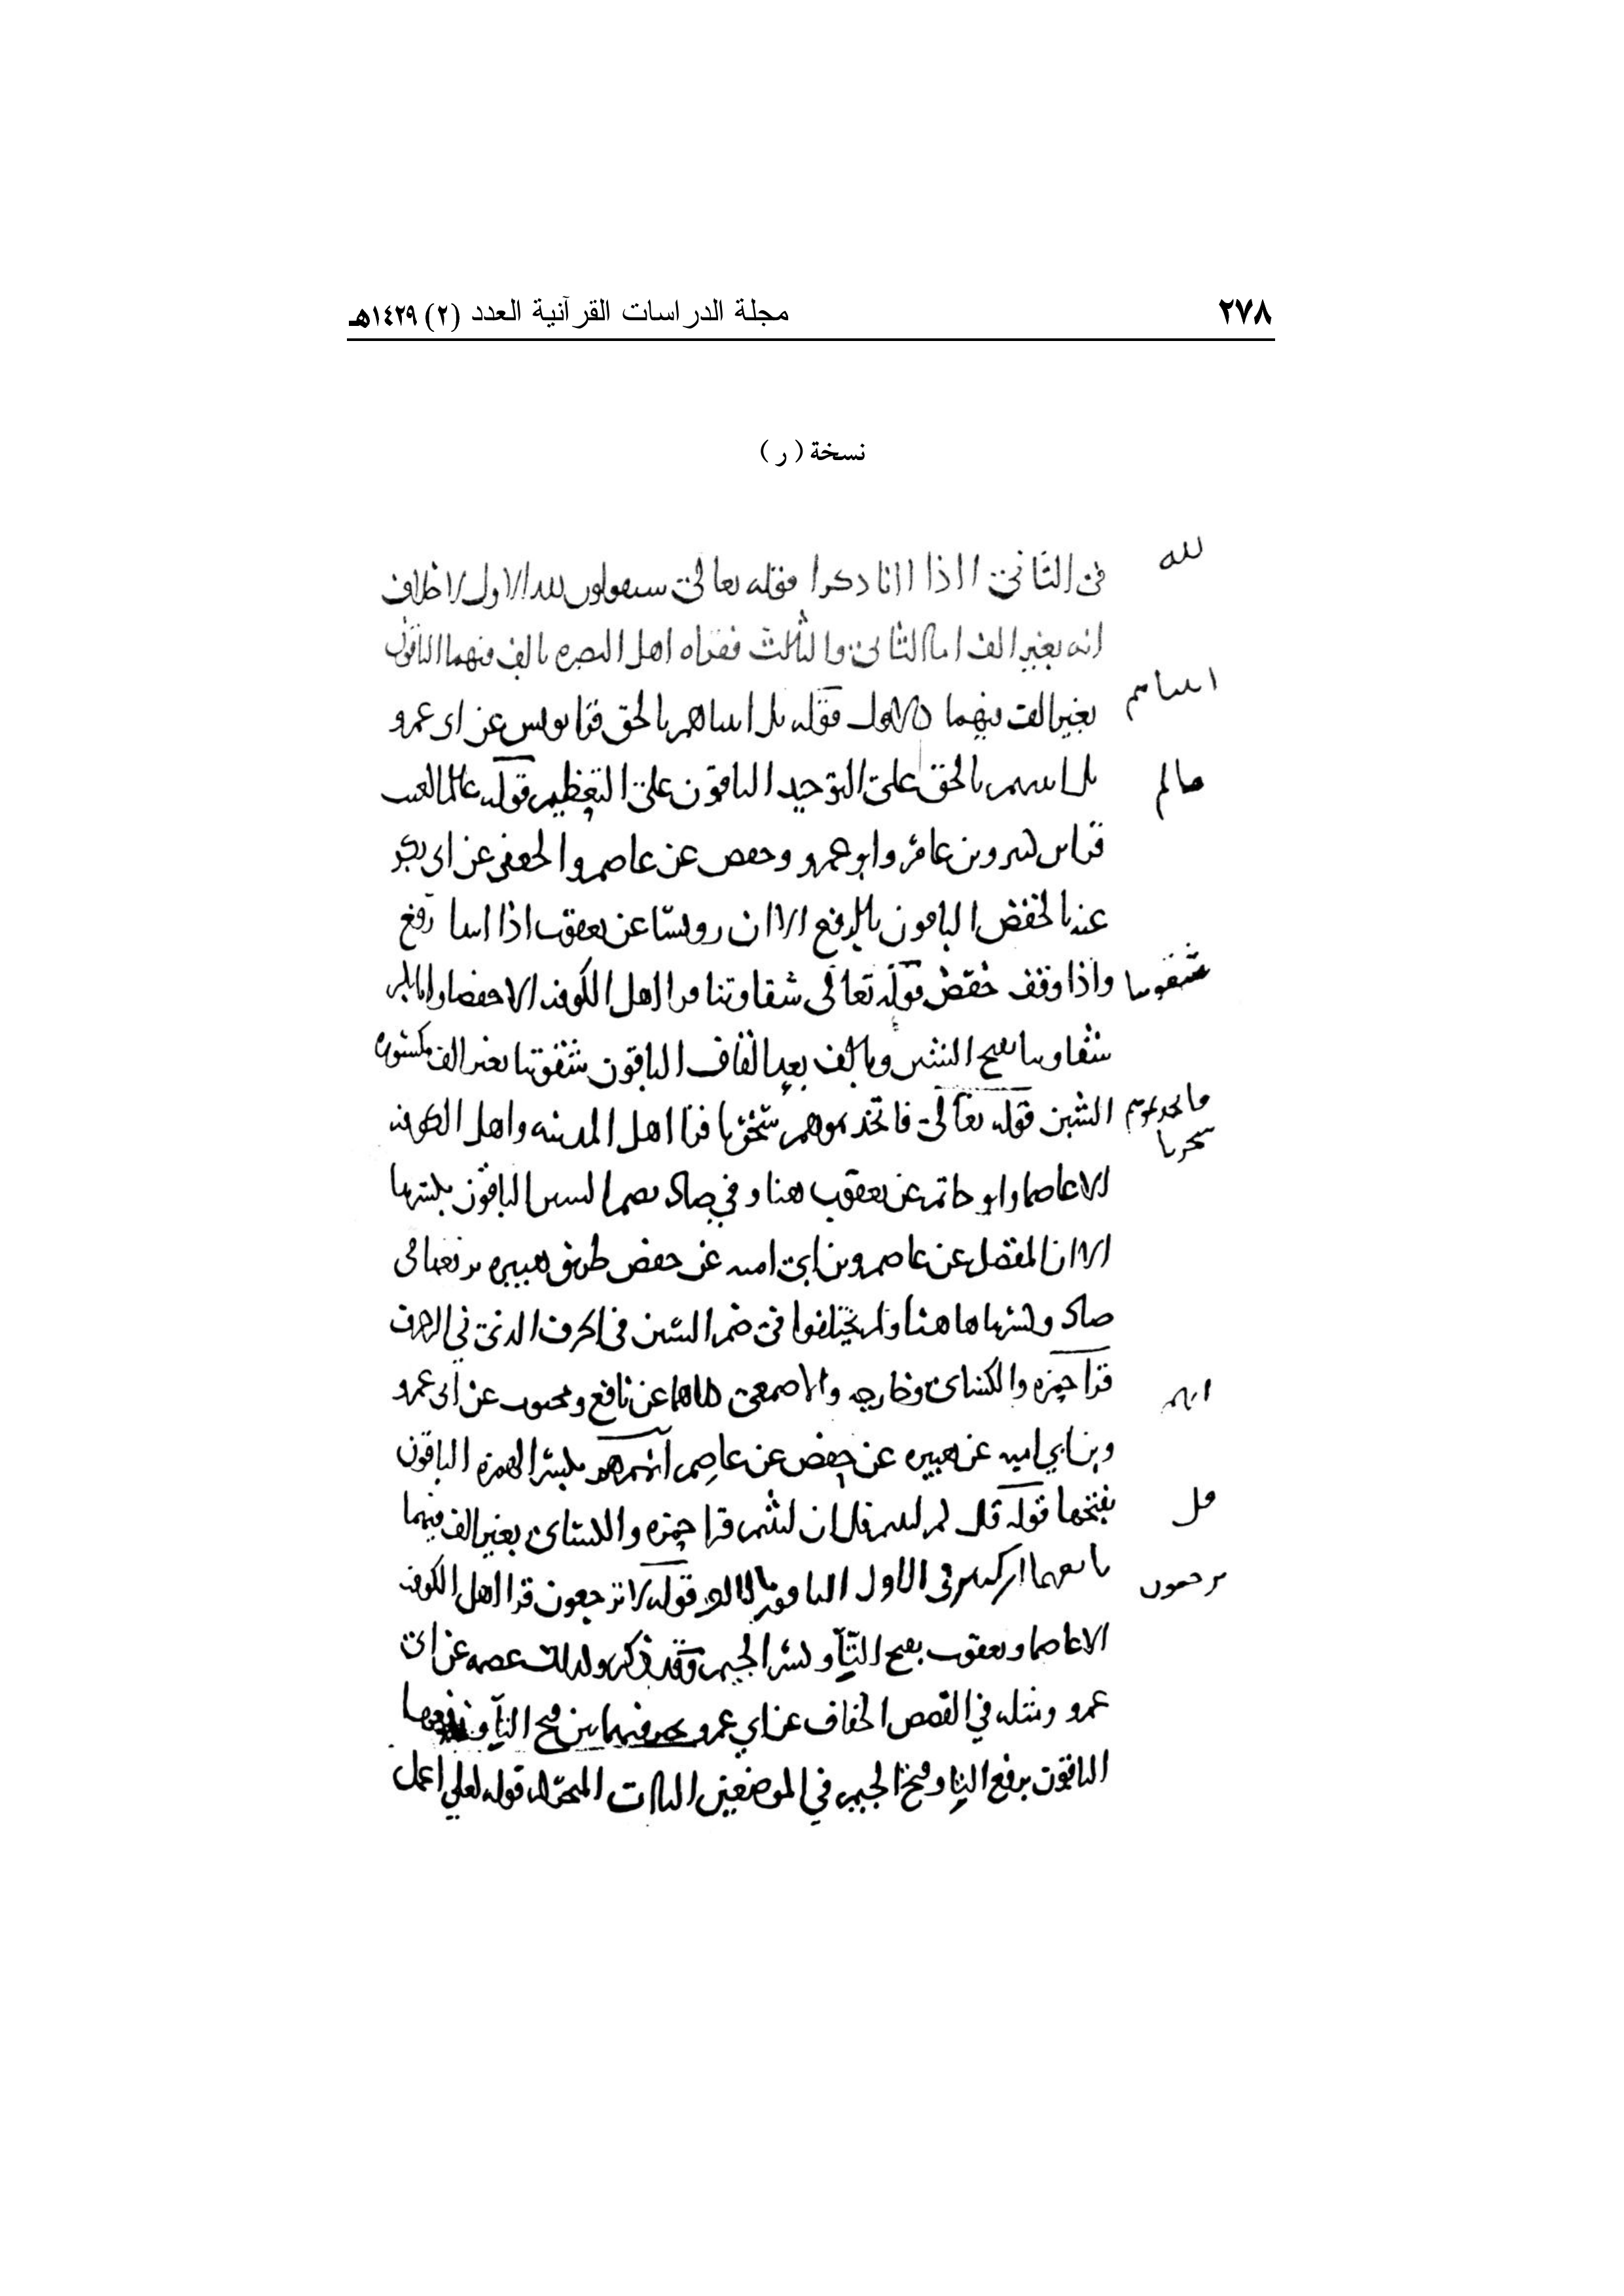 ٢٧٨
مجلة الدراسات القرآنية العدد (٢) ١٤٢٩هـ
نسخة ( ر )
لله
في الثاني ااذا اانا دكرا فقله تعالى سيقولون لله الاول لا خلاف
انه بغير الف اما الثاني والثالث فقراه اهل البصره بالف فيهما الباقون
بغير الف فيهما الاول فقله بل اتيناهم بالحق قرا يونس عن ابي عمرو
اتيناهم
بل اتيتهم بالحق على التوحيد الباقون على التعظيم قوله عالم الغيب
عالم
قرا بن كثير وبن عامر وابو عمرو وحفص عن عاصم والجعفي عن ابي بكر
عنه بالخفض الباقون بالرفع الا ان رويسا عن يعقوب اذا ابتدا رفع
واذا وقف خفض قوله تعالى شقاوتنا قرا اهل الكوفه الا حفصا وابا
شقوتنا
شقاوتنا بفتح الشين وبالف بعد القاف الباقون شقوتنا بغير الف مكسورة
الشين قوله تعالى فاتخذتموهم سخريا قرا اهل المدينه واهل الكوفه
فاتخذتموهم
سخريا
الا عاصما وابو حاتم عن يعقوب هنا وفي صاد بضم السين الباقون بكسرها
الا ان المفضل عن عاصم وبن ابي اميه عن حفص طريق هبيره يرفعها في
صاد وكسرها هاهنا ولم يختلفوا في ضم السين في الحرف الذي في الزخرف
قرا حمزه والكسائي وخارجه والاصمعي كلاهما عن نافع ومحبوب عن ابي عمرو
انهم
وبن ابي اميه عن هبيره عن حفص عن عاصم انهم هم بكسر الهمزه الباقون
بفتحها قوله قل كم لبثتم قل ان لبثتم قرا حمزه والكسائي بغير الف فيهما
قل
تابعهما بن كثير في الاول الباقون بالالف قوله لا ترجعون قرا اهل الكوفه
ترجعون
الا عاصما ويعقوب بفتح التا وكسر الجيم وقد ذكر وكذلك عصمه عن ابي
عمرو ومثله في القصص الخفاف عن ابي عمرو فيهما بين فتح التا ورفعها
الباقون برفع التا وفتح الجيم في الموضعين الياات المتحركه قوله لعلي اعمل